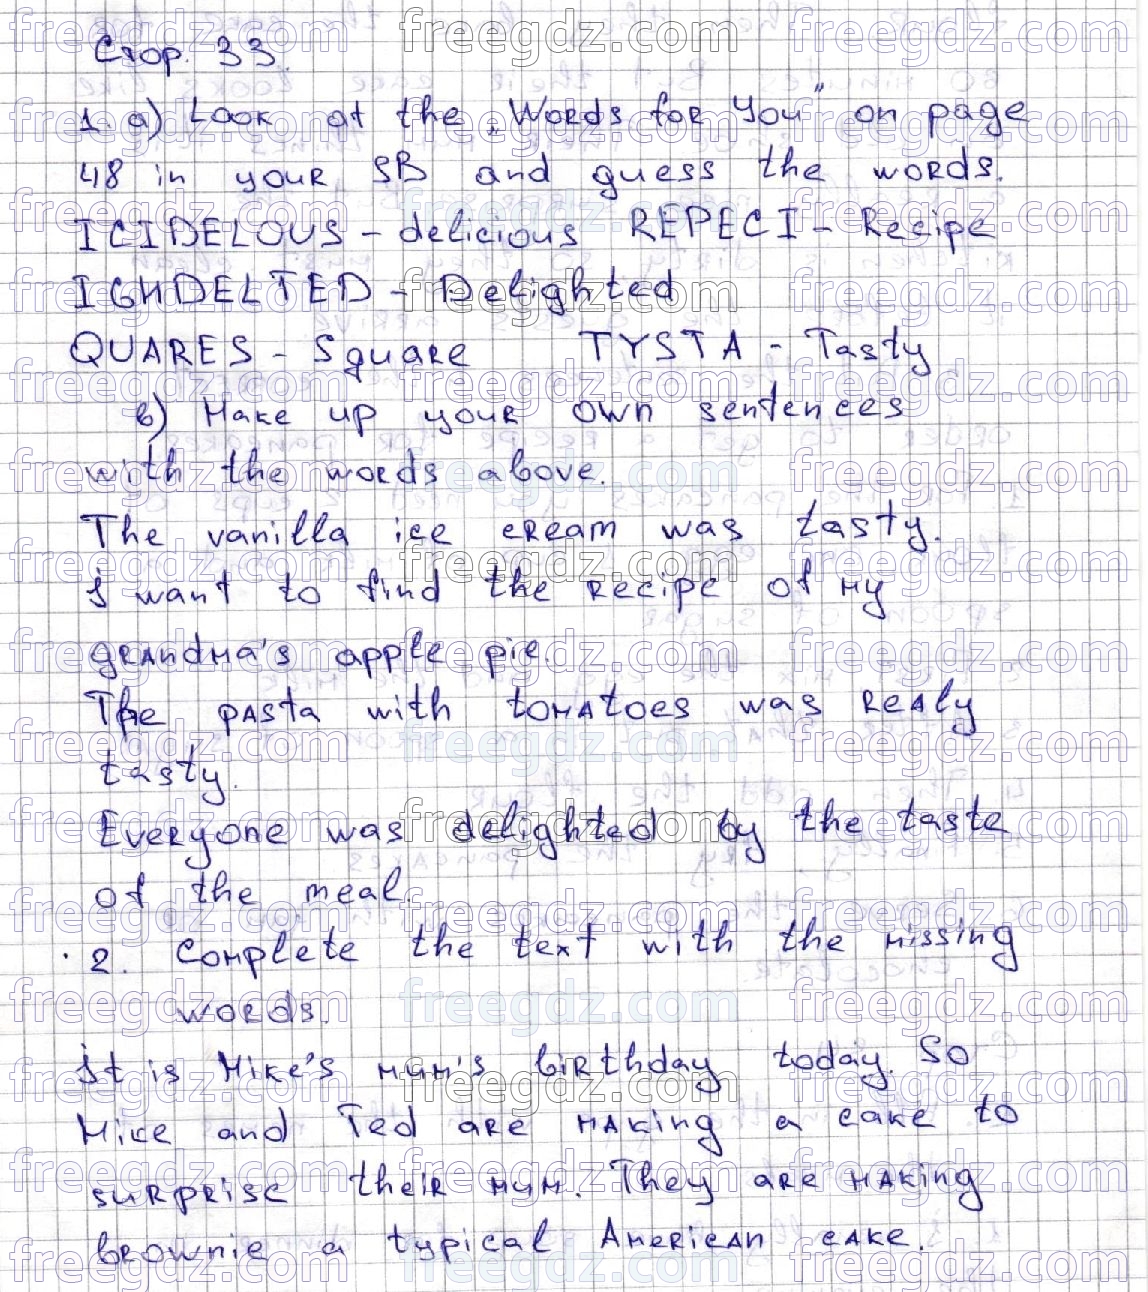 Стор. 33.
1. a) Look at the „Words for You” on page
48 in your SB and guess the words.
ICIDELOUS - delicious REPECI - Recipe
IGHDELTED - Delighted
QUARES - Square TYSTA - Tasty
b) Make up your own sentences
with the words above.
The vanilla ice cream was tasty.
i want to find the recipe of my
grandma's apple pie.
The pasta with tomatoes was realy
tasty.
Everyone was delighted by the taste
of the meal.
2. Complete the text with the missing
words.
it is Mike's mum's birthday today. So
Mike and Ted are making a cake to
surprise their mum. They are making
brownie a typical American cake.
freegdz.com